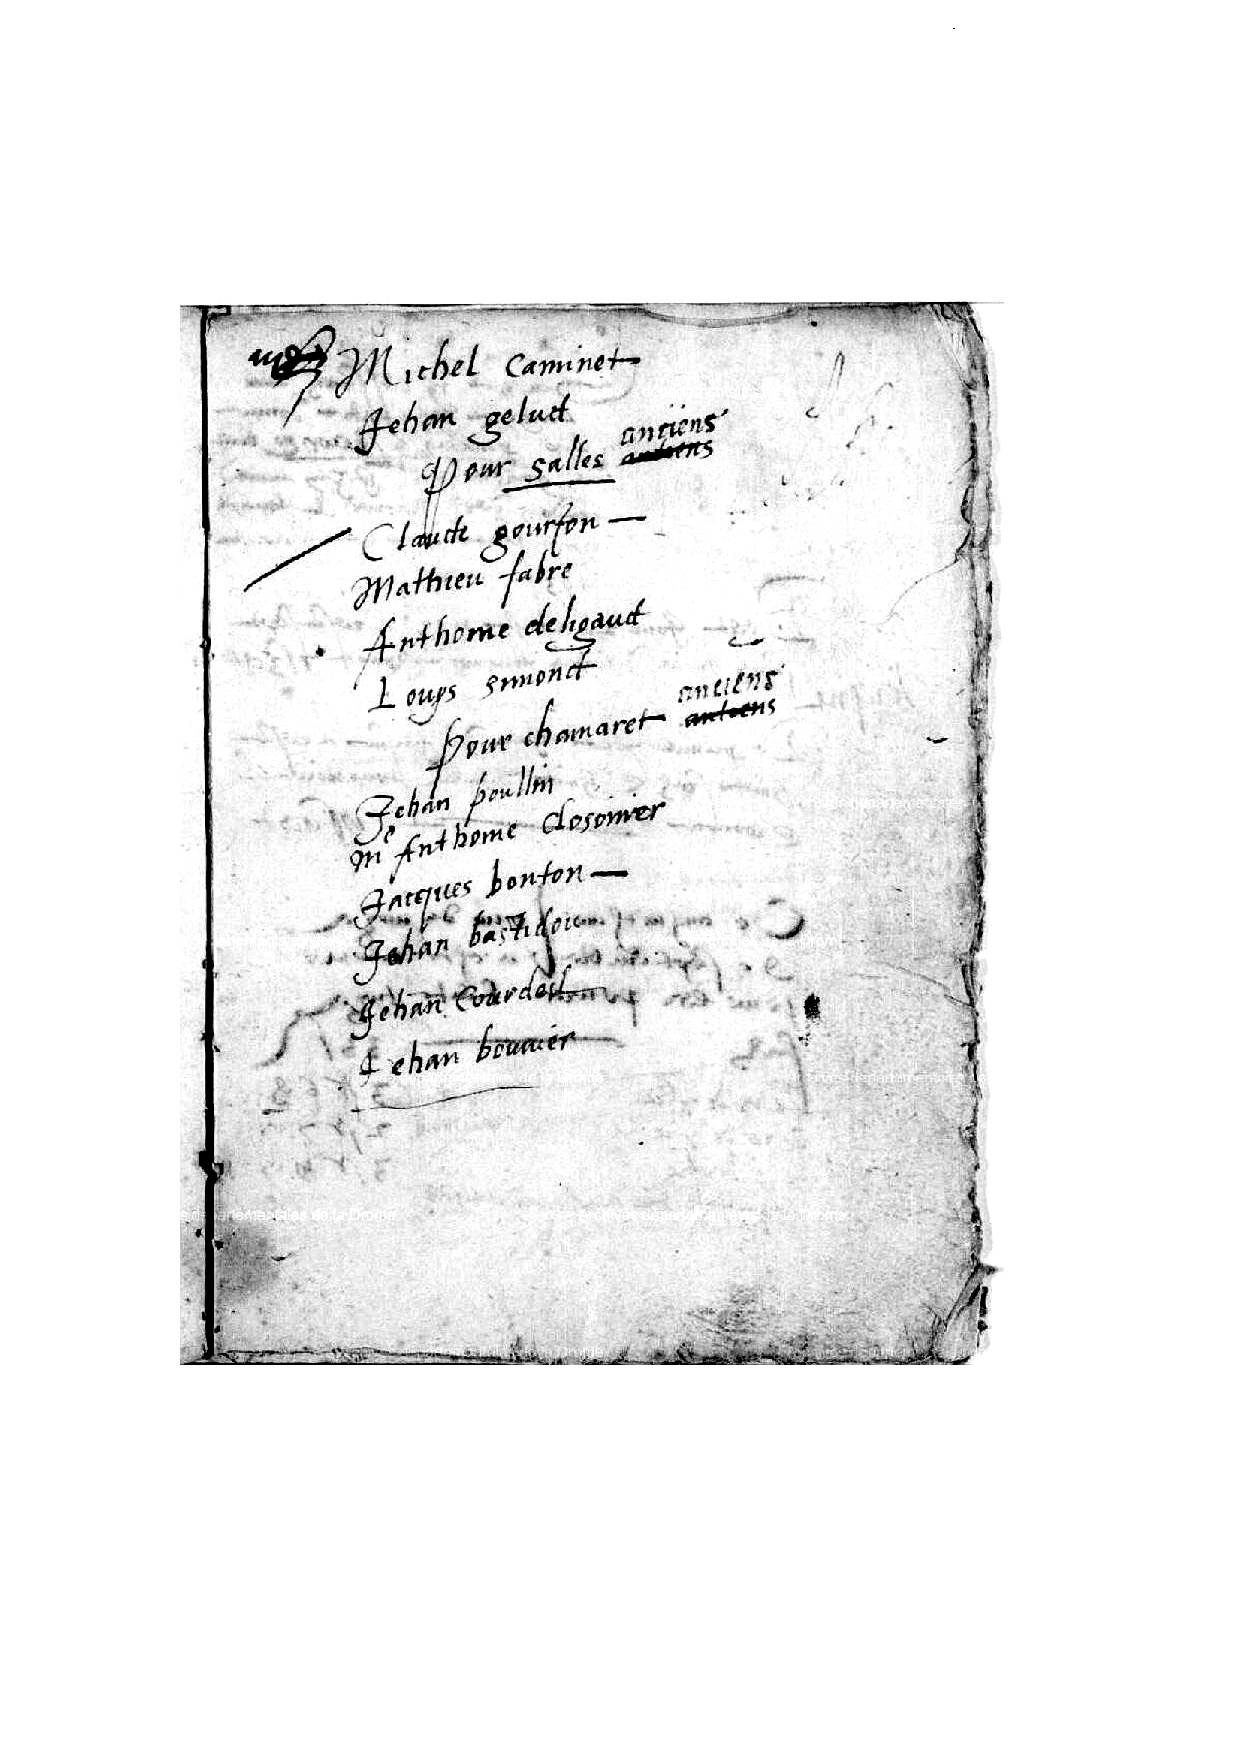 Michel Caminet
Jehan gelud
Pour salles anciens
Claude gourjon
Mathieu fabre
Anthoine deligaud
Louys simond
pour chamaret anciens
Jehan poullin
Me Anthoine Closonier
Jacques bonton
Jehan bastidon
Jehan Courdeil
Jehan bouuier